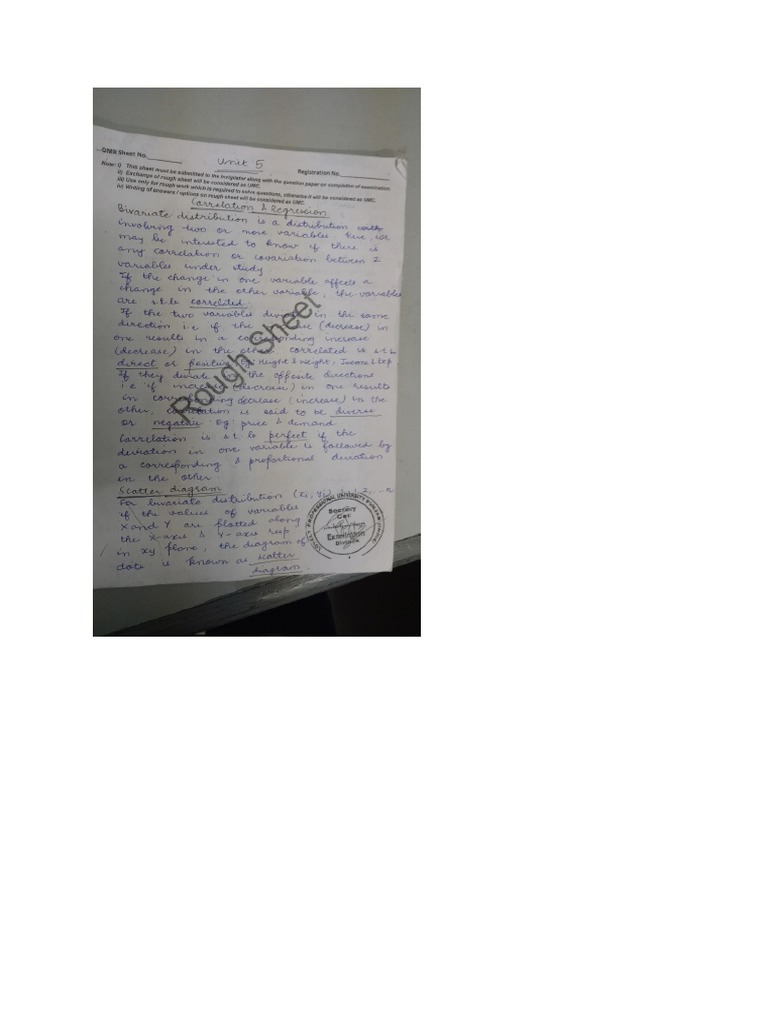 OMR Sheet No.
Unit 5
Registration No.
Note: i) This sheet must be submitted to the invigilator along with the question paper on completion of examination.
ii) Exchange of rough sheet will be considered as UMC.
iii) Use only for rough work which is required to solve questions, otherwise it will be considered as UMC.
iv) Writing of answers / options on rough sheet will be considered as UMC.
Correlation & Regression
Bivariate distribution is a distribution
involving two or more variables
may be interested to know if there is
any correlation or covariation between 2
variables under study
If the change in one variable affects a
change in the other variable, the variables
are s.t.be correlated
If the two variables deviate in the same
direction i.e if the (decrease) in
one results in a corresponding increase
(decrease) in the other correlated is s.t.b
direct or positive Eg: Height & weight, Income & Exp.
If they deviate in the opposite directions
i.e if increase (decrease) in one results
in corresponding decrease (increase) in the
other, correlation is said to be diverse
or negative. eg: price & demand
Correlation is s.t.b perfect if the
deviation in one variable is followed by
a corresponding & proportional deviation
in the other
Scatter diagram
For bivariate distribution (xi, yi) i=1,2,...n
if the values of variables
X and Y are plotted along
the X-axis & Y-axis resp
in xy plane, the diagram of
dots is known as scatter
diagram.
Rough Sheet
PROFESSIONAL UNIVERSITY
Secrecy
Cell
Examination
Division